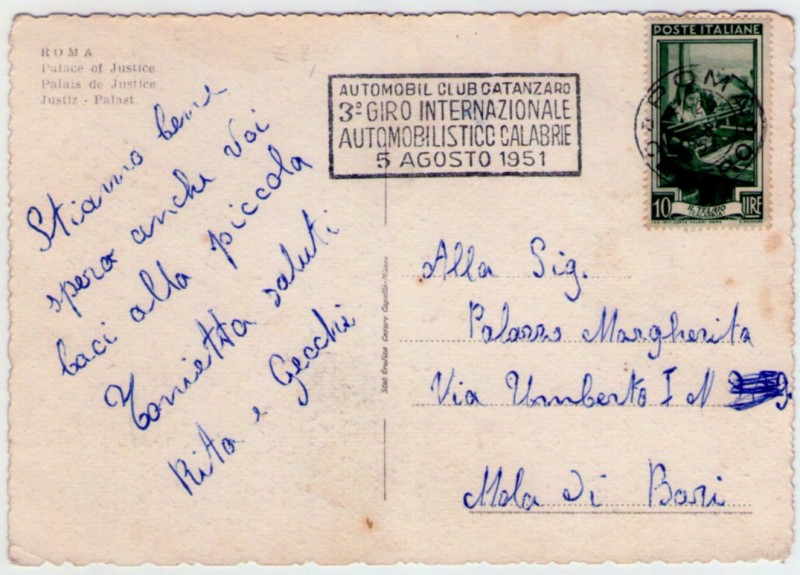 ROMA
Palace of Justice
Palais de Justice
Justiz - Palast
AUTOMOBIL CLUB CATANZARO
3º GIRO INTERNAZIONALE
AUTOMOBILISTICO CALABRIE
5 AGOSTO 1951
POSTE ITALIANE
ROMA
10 IL TELAIO LIRE
Stiamo bene
spero anche Voi
baci alla piccola
Tonietta saluti
Rita e Gecchi
Stab. Cesare Capello - Milano
Alla Sig.
Palazzo Margherita
Via Umberto I N
Mola di Bari